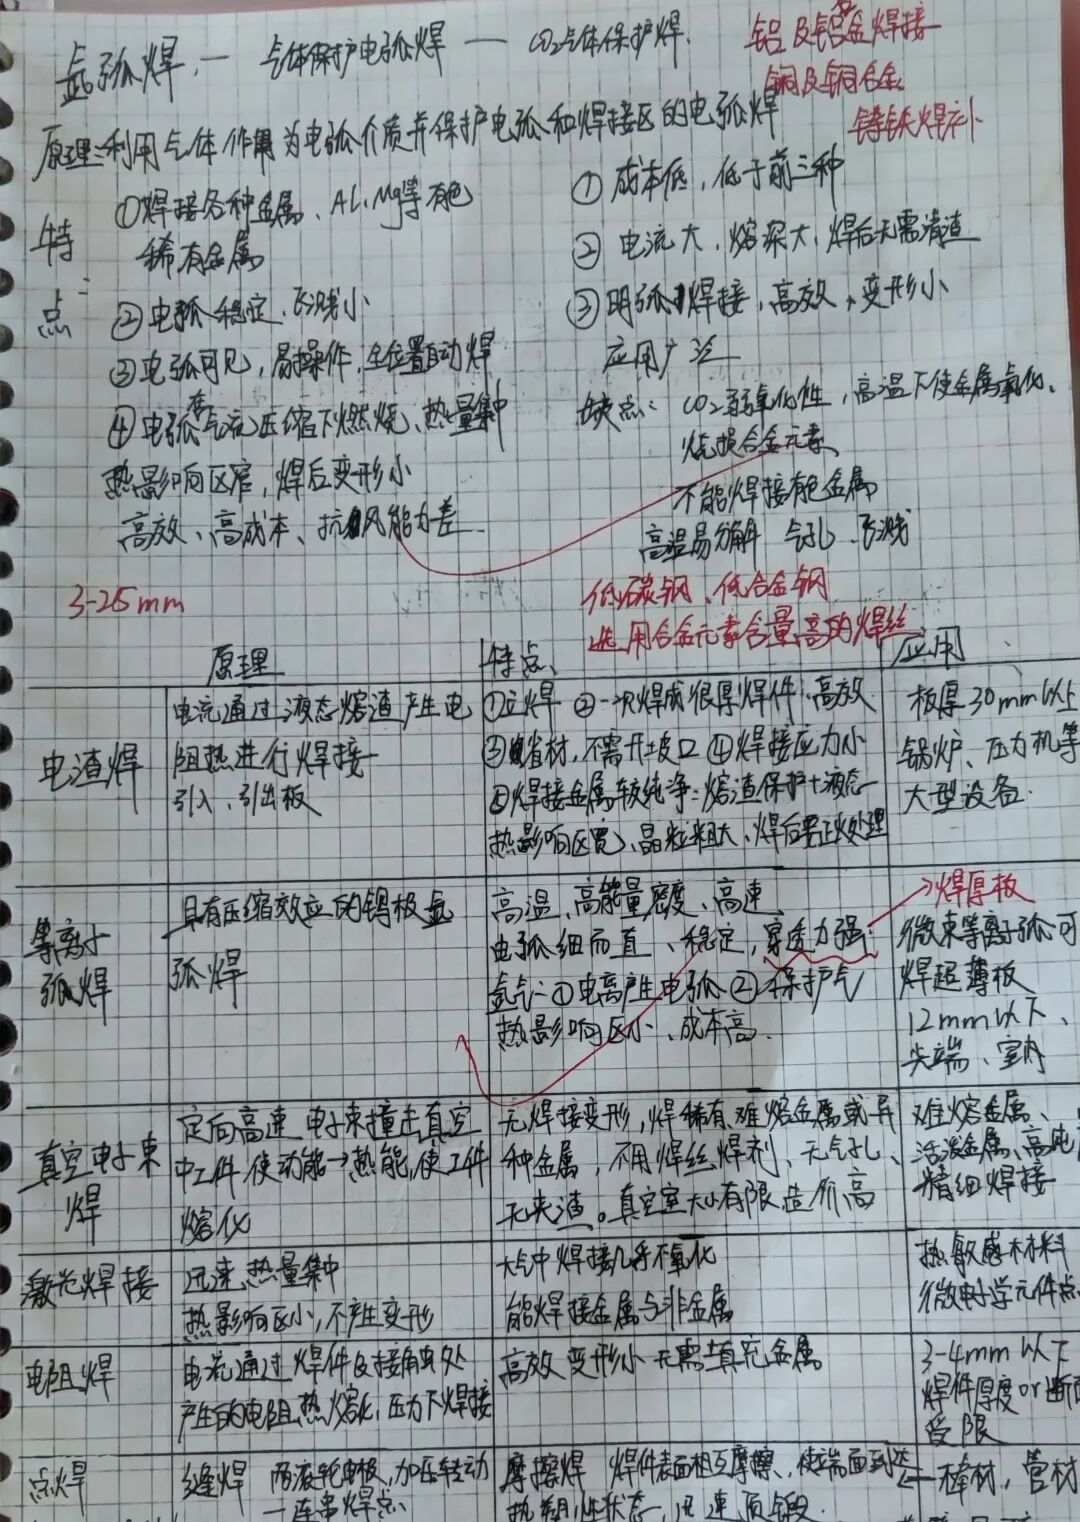 氩弧焊 — 气体保护电弧焊 — CO₂气体保护焊.
铝及铝合金焊接
铜及铜合金
铸铁焊补
原理:利用气体作用为电弧介质并保护电弧和焊接区的电弧焊
特点:
①焊接各种金属、Al、Mg等有色
稀有金属
②电弧稳定、飞溅小
③电弧可见,易操作,全位置自动焊
④电弧在气流压缩下燃烧、热量集中
热影响区窄,焊后变形小
高效、高成本、抗风能力差
3-25mm
①成本低,低于前三种
②电流大,熔深大,焊后无需清渣
③明弧焊接,高效,变形小
应用广泛
缺点:CO₂弱氧化性,高温下使金属氧化、
烧损合金元素
不能焊接有色金属
高温易分解 气孔、飞溅
低碳钢、低合金钢
选用合金元素含量高的焊丝
原理 特点 应用
电渣焊
电流通过液态熔渣产生电
阻热进行焊接
引入、引出板
①立焊 ②一次焊成很厚焊件、高效
③省材,不需开坡口 ④焊接应力小
⑤焊接金属较纯净:熔渣保护+液态
热影响区宽、晶粒粗大、焊后要正火处理
板厚30mm以上
锅炉、压力机等
大型设备.
等离子
弧焊
具有压缩效应的钨极氩
弧焊
高温、高能量密度、高速、
电弧细而直、稳定,穿透力强
氩气:①电离产生电弧 ②保护气
热影响区小、成本高.
→焊厚板
微束等离子弧可
焊超薄板
12mm以下、
尖端、室内
真空电子束
焊
定向高速电子束撞击真空
中工件使动能→热能,使工件
熔化
无焊接变形,焊稀有、难熔金属或异
种金属,不用焊丝焊剂、无气孔、
无夹渣。真空室大小有限,造价高
难熔金属、
活泼金属、高纯
精细焊接
激光焊接
迅速、热量集中
热影响区小,不产生变形
大气中焊接几乎不氧化
能焊接金属与非金属
热敏感材料
微电子学元件点
电阻焊
电流通过焊件及接触处
产生的电阻热熔化,压力下焊接
高效 变形小 无需填充金属
3-4mm以下
焊件厚度or断面
受限
点焊
缝焊 两滚轮电极,加压转动
一连串焊点
摩擦焊 焊件表面相互摩擦、使端面到达
热塑性状态,迅速顶锻.
棒材,管材